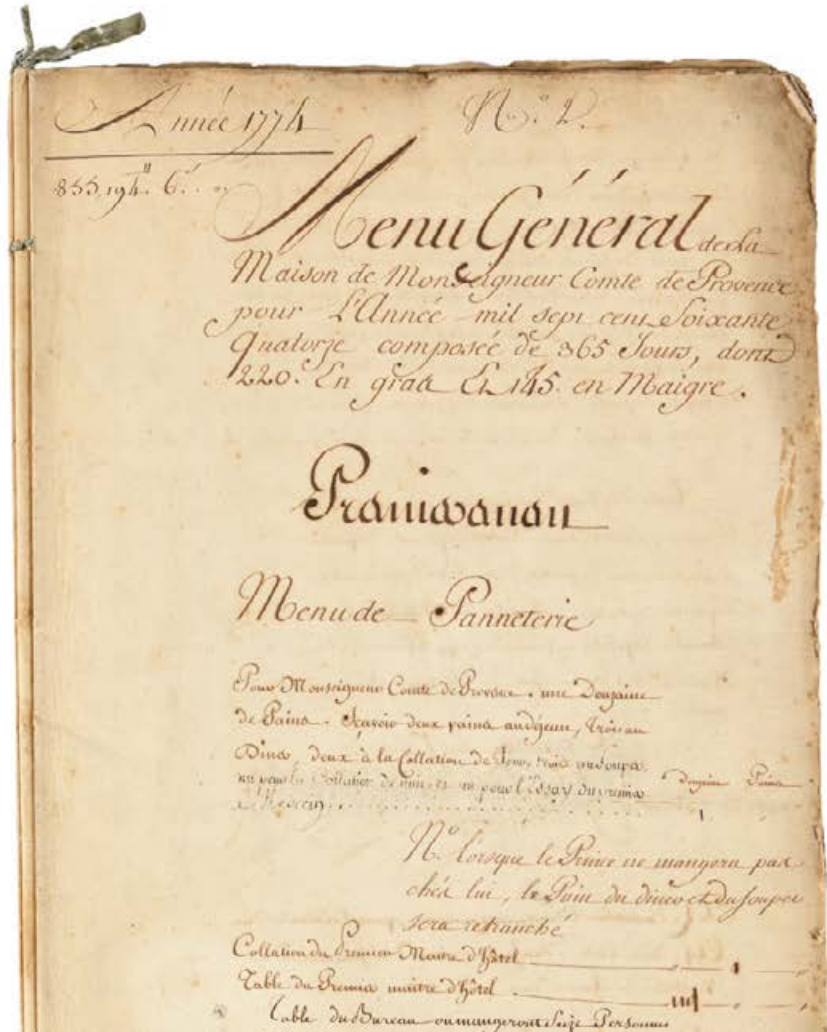 Année 1774
N.º 2.
855,194.ᴴ 6.ˢ
Menu Général de la
Maison de Monseigneur Comte de Provence
pour L'Année mil sept cent Soixante
Quatorze composée de 365 Jours, dont
220. En gras Et 145. en Maigre.
Menu de Panneterie
Pour Monseigneur Comte de Provence. une Douzaine
de Pains. Scavoir deux pains audejeun, trois au
Diner, deux à la Collation de Jour, trois au Soupé,
un pour la Collation de nuit, et un pour l'Essay du premier
Medecin
Douzaine Pains
1
N.º lorsque le Prince ne mangera pas
chés lui, le Pain du diner et du souper
sera retranché
Collation du Premier Maitre d'hôtel
Table du Premier maitre d'hôtel
Table du Bureau ou mangeront Seize Personnes